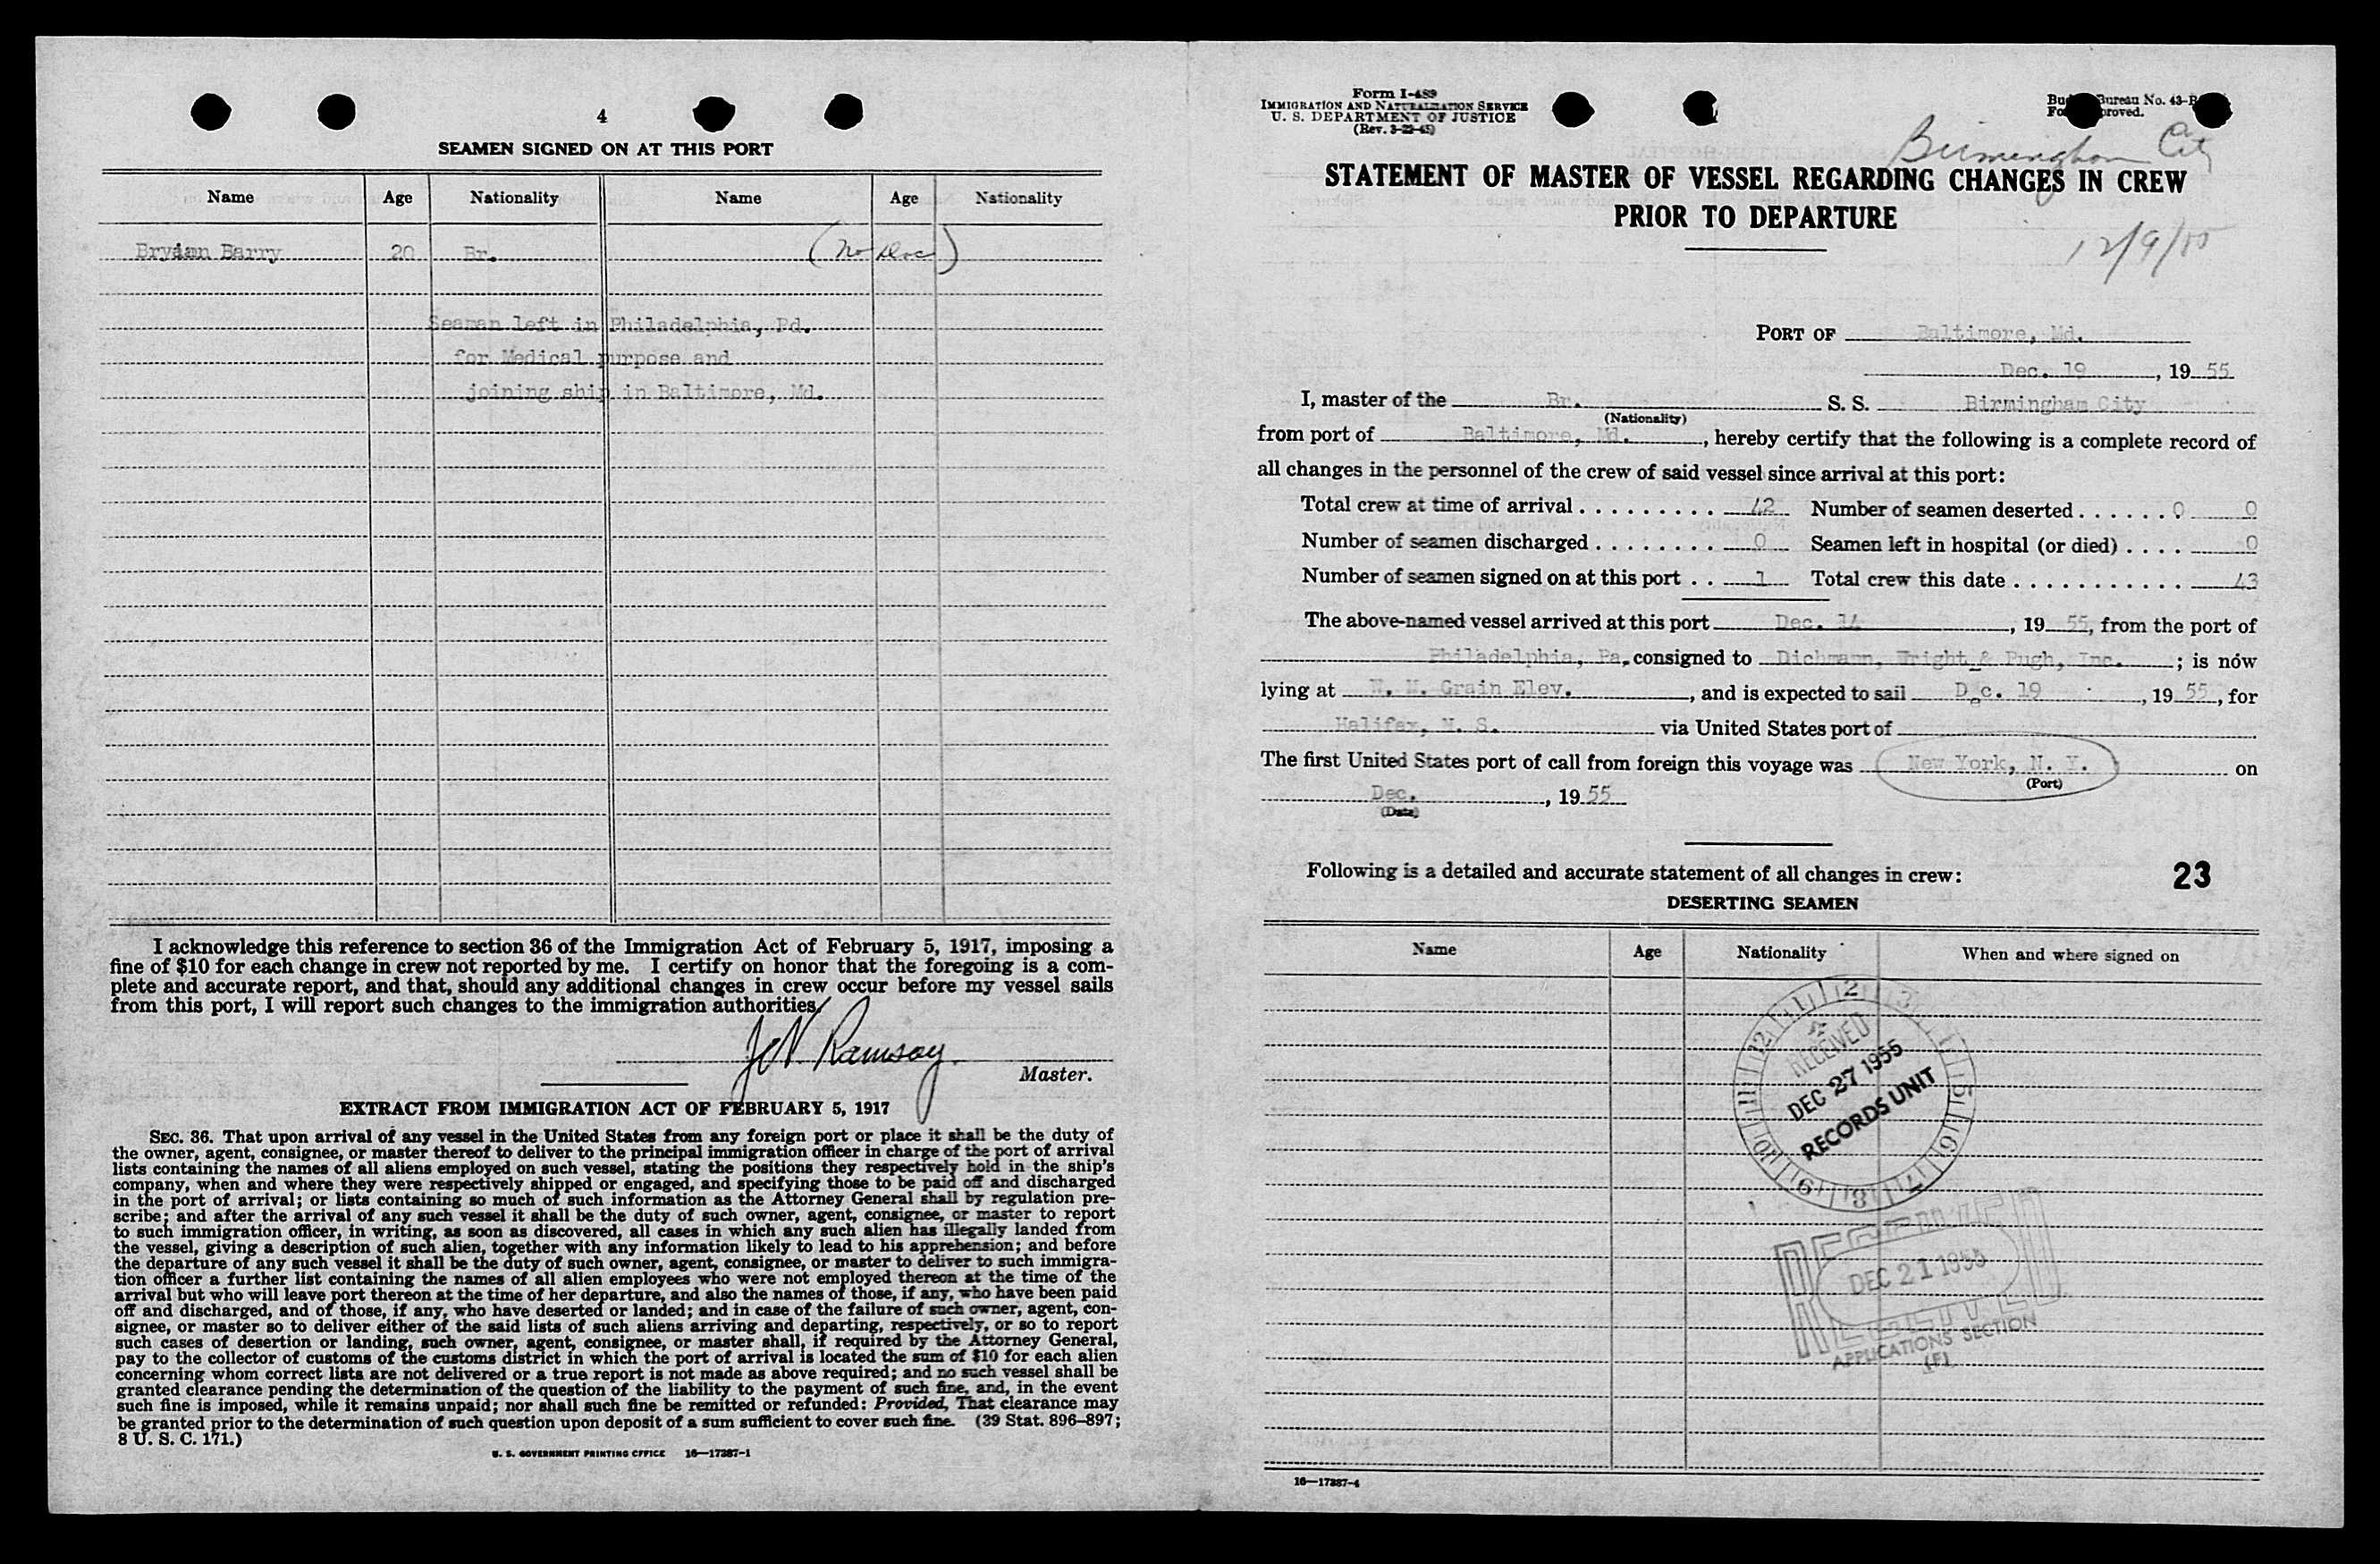 4
SEAMEN SIGNED ON AT THIS PORT
Name Age Nationality Name Age Nationality
Barry 20 Br. (No Doc)
Seaman left in Philadelphia, Pd.
for Medical purpose and
joining ship in Baltimore, Md.
I acknowledge this reference to section 36 of the Immigration Act of February 5, 1917, imposing a
fine of $10 for each change in crew not reported by me. I certify on honor that the foregoing is a com-
plete and accurate report, and that, should any additional changes in crew occur before my vessel sails
from this port, I will report such changes to the immigration authorities.
Ramsay
Master.
EXTRACT FROM IMMIGRATION ACT OF FEBRUARY 5, 1917
SEC. 36. That upon arrival of any vessel in the United States from any foreign port or place it shall be the duty of
the owner, agent, consignee, or master thereof to deliver to the principal immigration officer in charge of the port of arrival
lists containing the names of all aliens employed on such vessel, stating the positions they respectively hold in the ship's
company, when and where they were respectively shipped or engaged, and specifying those to be paid off and discharged
in the port of arrival; or lists containing so much of such information as the Attorney General shall by regulation pre-
scribe; and after the arrival of any such vessel it shall be the duty of such owner, agent, consignee, or master to report
to such immigration officer, in writing, as soon as discovered, all cases in which any such alien has illegally landed from
the vessel, giving a description of such alien, together with any information likely to lead to his apprehension; and before
the departure of any such vessel it shall be the duty of such owner, agent, consignee, or master to deliver to such immigra-
tion officer a further list containing the names of all alien employees who were not employed thereon at the time of the
arrival but who will leave port thereon at the time of her departure, and also the names of those, if any, who have been paid
off and discharged, and of those, if any, who have deserted or landed; and in case of the failure of such owner, agent, con-
signee, or master so to deliver either of the said lists of such aliens arriving and departing, respectively, or so to report
such cases of desertion or landing, such owner, agent, consignee, or master shall, if required by the Attorney General,
pay to the collector of customs of the customs district in which the port of arrival is located the sum of $10 for each alien
concerning whom correct lists are not delivered or a true report is not made as above required; and no such vessel shall be
granted clearance pending the determination of the question of the liability to the payment of such fine, and, in the event
such fine is imposed, while it remains unpaid; nor shall such fine be remitted or refunded: Provided, That clearance may
be granted prior to the determination of such question upon deposit of a sum sufficient to cover such fine. (39 Stat. 896–897;
8 U. S. C. 171.)
U. S. GOVERNMENT PRINTING OFFICE 16—17387-1
Form I-489
IMMIGRATION AND NATURALIZATION SERVICE
U. S. DEPARTMENT OF JUSTICE
(Rev. 3-22-45)
Bureau No. 43-R
Birmingham City
STATEMENT OF MASTER OF VESSEL REGARDING CHANGES IN CREW
PRIOR TO DEPARTURE
12/9/55
PORT OF Baltimore, Md.
Dec. 19, 19 55
I, master of the Br. S. S. Birmingham City
(Nationality)
from port of Baltimore, Md., hereby certify that the following is a complete record of
all changes in the personnel of the crew of said vessel since arrival at this port:
Total crew at time of arrival 42 Number of seamen deserted 0 0
Number of seamen discharged 0 Seamen left in hospital (or died) 0
Number of seamen signed on at this port 1 Total crew this date 43
The above-named vessel arrived at this port Dec. 14, 19 55, from the port of
Philadelphia, Pa. consigned to Dichmann, Wright & Pugh, Inc.; is now
lying at W. M. Grain Elev., and is expected to sail Dec. 19, 19 55, for
Halifax, N. S. via United States port of
The first United States port of call from foreign this voyage was New York, N. Y. on
(Port)
Dec., 19 55
(Date)
Following is a detailed and accurate statement of all changes in crew:
23
DESERTING SEAMEN
Name Age Nationality When and where signed on
12 1 2 3 5 6 7 8 9 10 11
RECEIVED
DEC 27 1955
RECORDS UNIT
RECEIVED
DEC 21 1955
RECEIVED
APPLICATIONS SECTION
(F)
16—17387-4